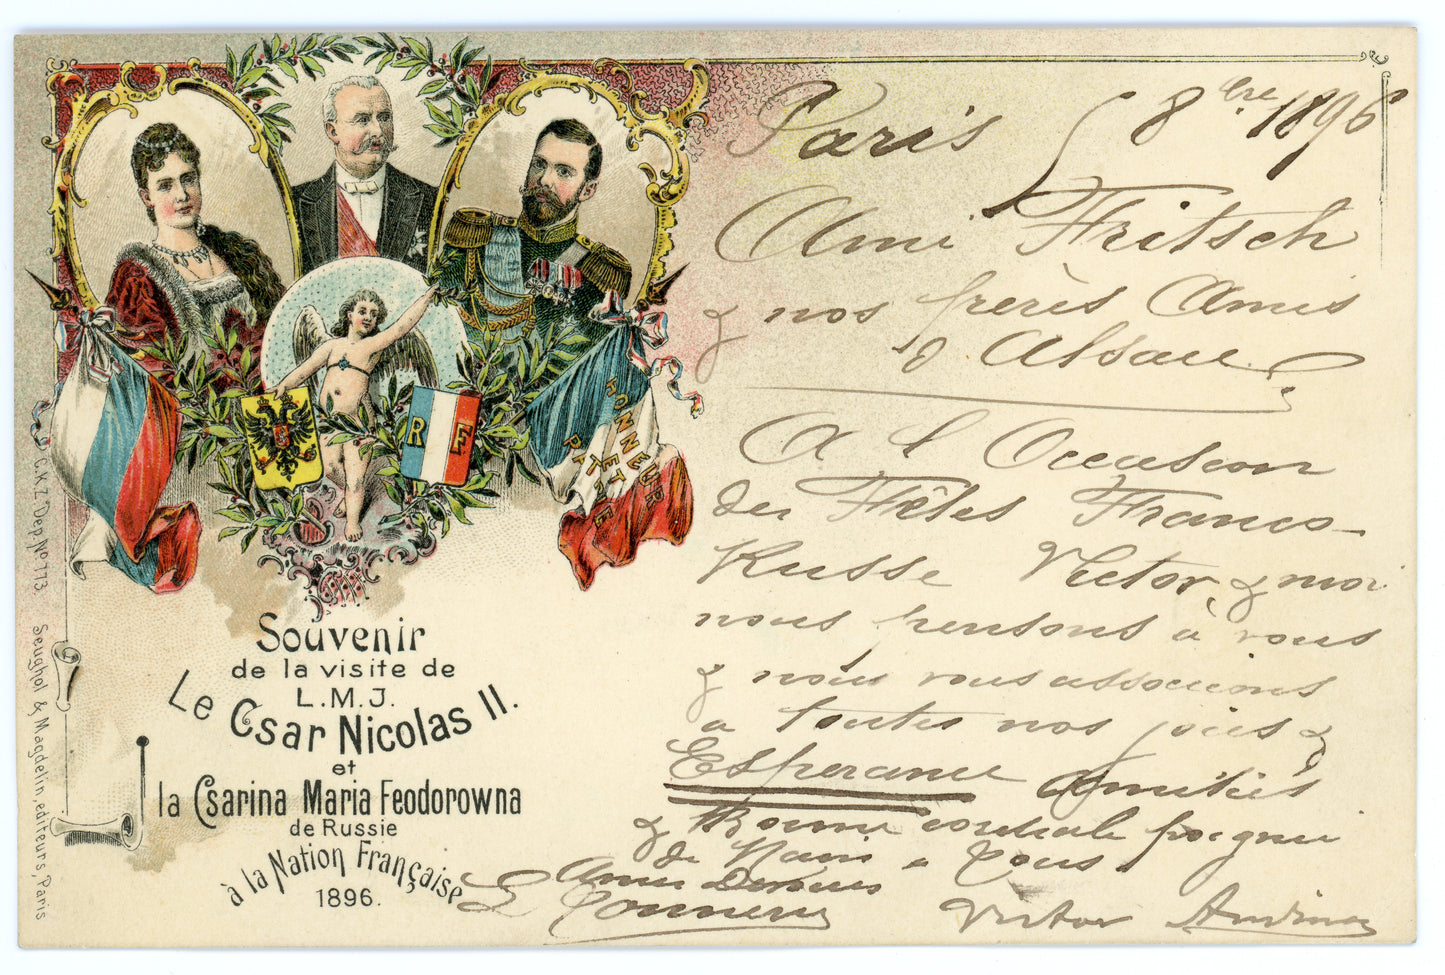 Souvenir
de la visite de
L.M.J.
Le Csar Nicolas II.
et
la Csarina Maria Feodorowna
de Russie
à la Nation Française
1896.
C.K.Z. Dep. No 773. Seughol & Magdelin, editeurs, Paris
R F
HONNEUR
ET
PATRIE
Paris 8 bre 1896
Ami Fritsch
& nos frerès Amis
d Alsace
A l Occasion
des Fêtes Franco-
Russe Victor & moi
nous pensons à vous
& nous vous associons
a toutes nos joies &
Espérance amitiés
& Bonne cordiale poignée
de Main a Tous
Amis Devoués
Victor